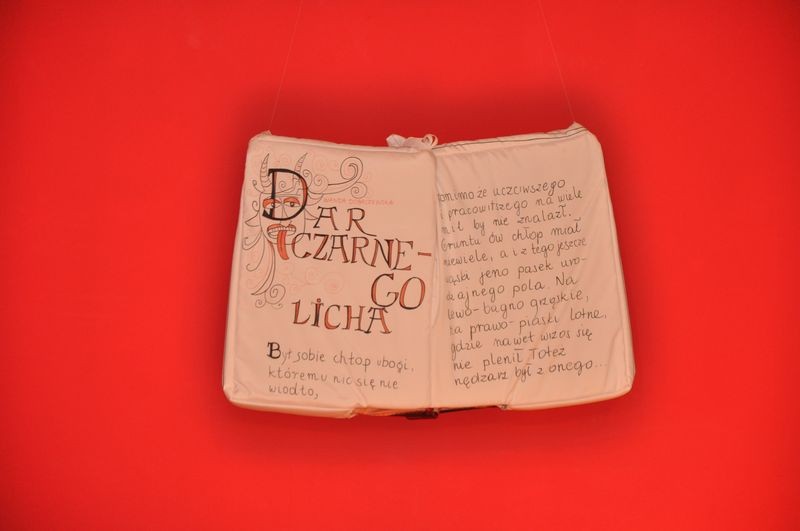 WANDA DOBACZEWSKA
DAR
CZARNE-
GO
LICHA
Był sobie chłop ubogi,
któremu nic się nie
wiodło,
pomimo że uczciwszego
i pracowitszego na wiele
mil by nie znalazł.
Gruntu ów chłop miał
niewiele, a i z tego jeszcze
wąski jeno pasek uro-
dzajnego pola. Na
lewo- bagno grząskie,
na prawo- piaski lotne,
gdzie nawet wrzos się
nie plenił. Toteż
nędzarz był z onego...